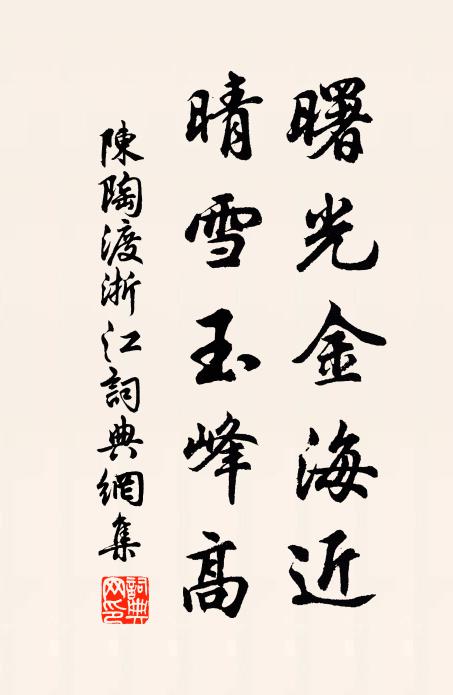 曙光金海近
晴雪玉峰高
陳陶渡浙江詞典網集
詞典網印